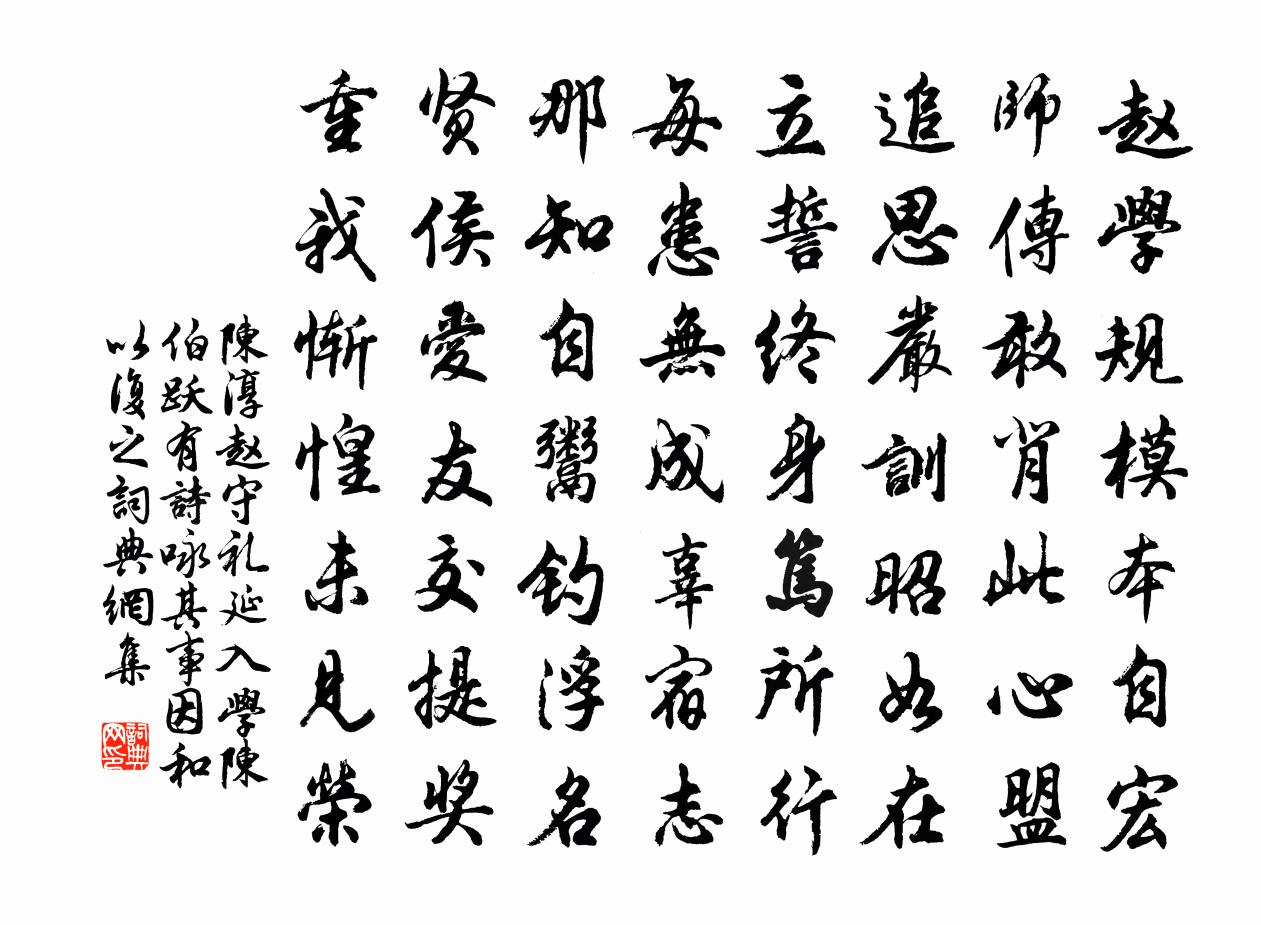 赵學規模本自宏
師傳敢肖此心盟
追思嚴訓昭如在
立誓終身篤所行
每患無成辜宿志
那知自鬻钓浮名
贤侯愛友交提奖
重我惭惶未見榮
陳淳赵守礼延入學陳
伯跃有詩咏其事因和
以復之詞典網集
詞典网印